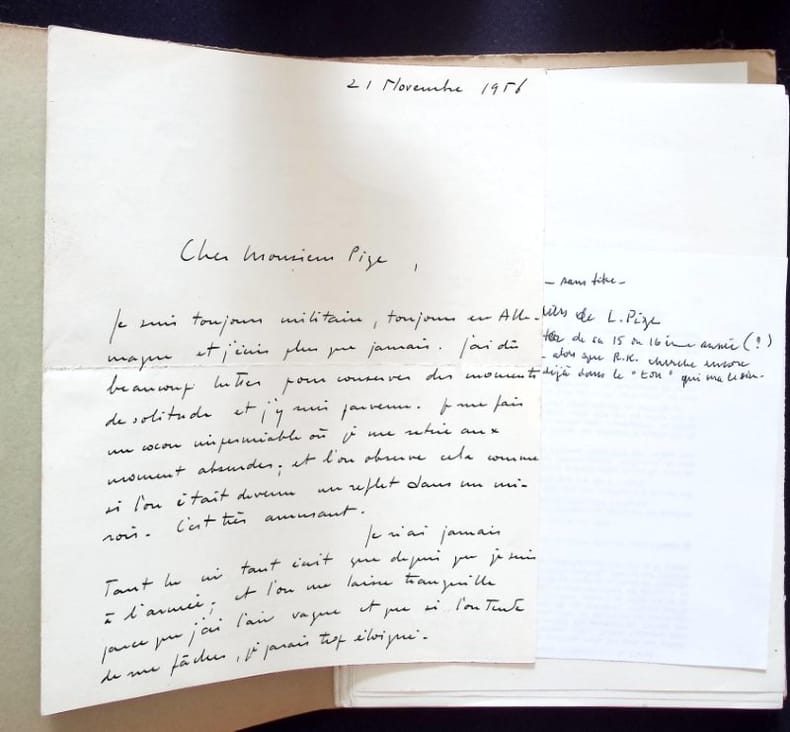 21 Novembre 1956
Cher Monsieur Pize,
Je suis toujours militaire, toujours en Alle-
magne et j'écris plus que jamais. J'ai dû
beaucoup lutter pour conserver des moments
de solitude et j'y suis parvenu. Je me fais
un cocon imperméable où je me retire aux
moment absurdes ; et l'on observe cela comme
si l'on était devenu un reflet dans un mi-
roir. C'est très amusant.
Je n'ai jamais
tant lu ni tant écrit que depuis que je suis
à l'armée ; et l'on me laisse tranquille
parce que j'ai l'air vague et que si l'on tente
de me fâcher, je parais trop éloigné.
- sans titre -
de L. Pize
de sa 15 ou 16ième année (?)
- alors que R.K. cherche encore
déjà dans le "ton" qui